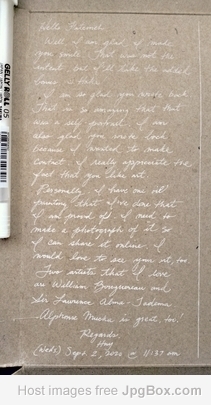 Hello Fatimah
Well I am glad I made
you smile. That was not the
intent but I'll take the added
bonus. Haha.
I am so glad you wrote back.
That is so amazing that that
was a self portrait. I am
also glad you wrote back
because I wanted to make
contact. I really appreciate the
fact that you like art.
Personally, I have one oil
painting that I've done that
I am proud of. I need to
make a photograph of it so
I can share it online. I
would love to see yours, too.
Two artists that I love
are William Bouguereau and
Sir Lawrence Alma-Tadema.
Alphonse Mucha is great, too.
Regards,
(Weds) Sept. 2, 2020 @ 11:37 am
GELLY ROLL 05
Host images free JpgBox.com